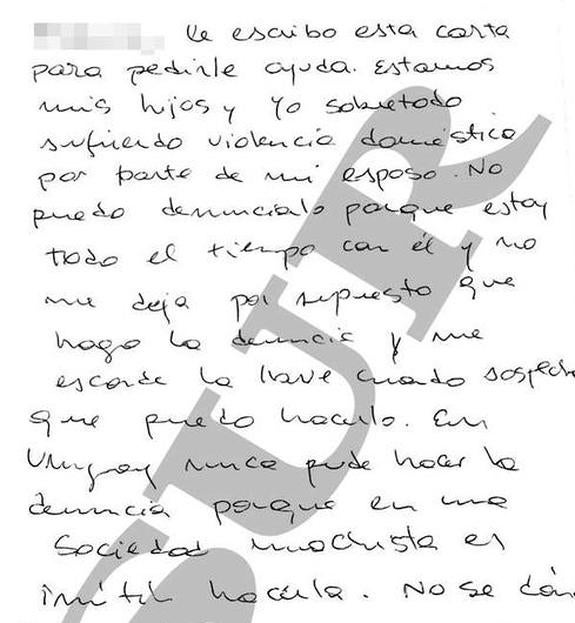 le escribo esta carta
para pedirle ayuda. Estamos
mis hijos y yo sobretodo
sufriendo violencia doméstica
por parte de mi esposo. No
puedo denuncialo porque estoy
todo el tiempo con él y no
me deja por supuesto que
hago la denuncia y me
esconde la llave cuando sospecha
que puedo hacerlo. En
Uruguay nunca pude hacer la
denuncia porque en una
sociedad machista es
inútil hacerla. No se cóm
SUR